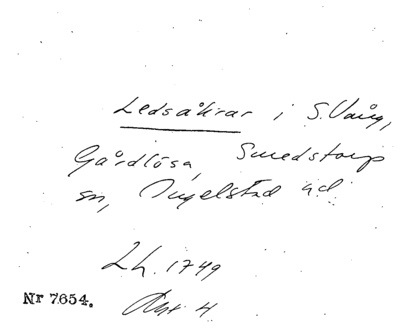 Ledsåkrar i S. Vång,
Gårdlösa, Smedstorp
sn, Ingelstad hd
Lh. 1749
Nr 7654. Akt 4